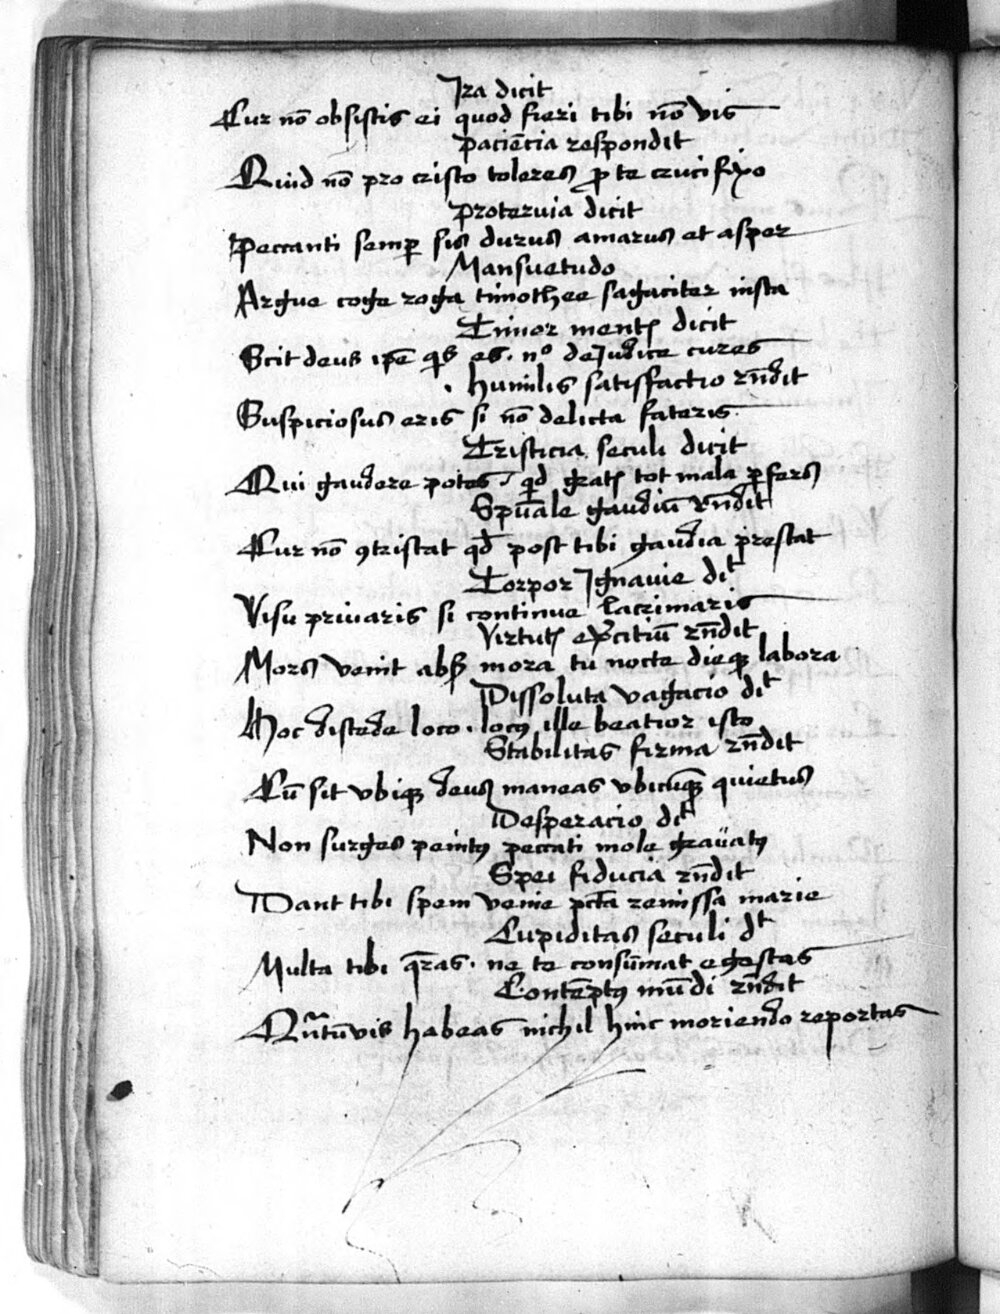 Ira dicit
Cur nō obsistis ei quod fieri tibi nō vis
paciēcia respondit
Quid nō pro cristo toleres ꝓ te crucifixo
proteruia dicit
Peccanti semꝑ sis durus amarus et asper
Mansuetudo
Argue coge roga timothee sagaciter insta
Timor mentꝭ dicit
Scit deus ipē qͥs es . nº de Iudice cures
. humilis satisfactio rn̄dit
Suspiciosus eris si nō delicta fateris
Tristicia seculi dicit
Qui gaudere potes . qͥd gratꝭ tot mala ꝑfers
Spūale gaudiū rn̄dit
Cur nō ꝯtristat qđ post tibi gaudia prestat
Torpor Ignauie diͭ
Visu priuaris si continue lacrimaris
Virtutꝭ ex̄citiū rn̄dit
Mors venit absqꝫ mora tu nocte dieqꝫ labora
Dissoluta vagacio diͭ
Hoc distede loco . locꝰ ille beatior isto
Stabilitas firma rn̄dit
Cū sit vbiqꝫ deus maneas vbicūqꝫ quietus
Desperacio diͭ
Non surges penitꝰ peccati mole grauatꝰ
Spei fiducia rn̄dit
Dant tibi spem venie pctā remissa marie
Cupiditas seculi dͭ
Multa tibi q̄ras . ne te consūmat egestas
Contēptꝰ mūdi rn̄dit
Qn̄tūvis habeas nichil hinc moriendo reportas